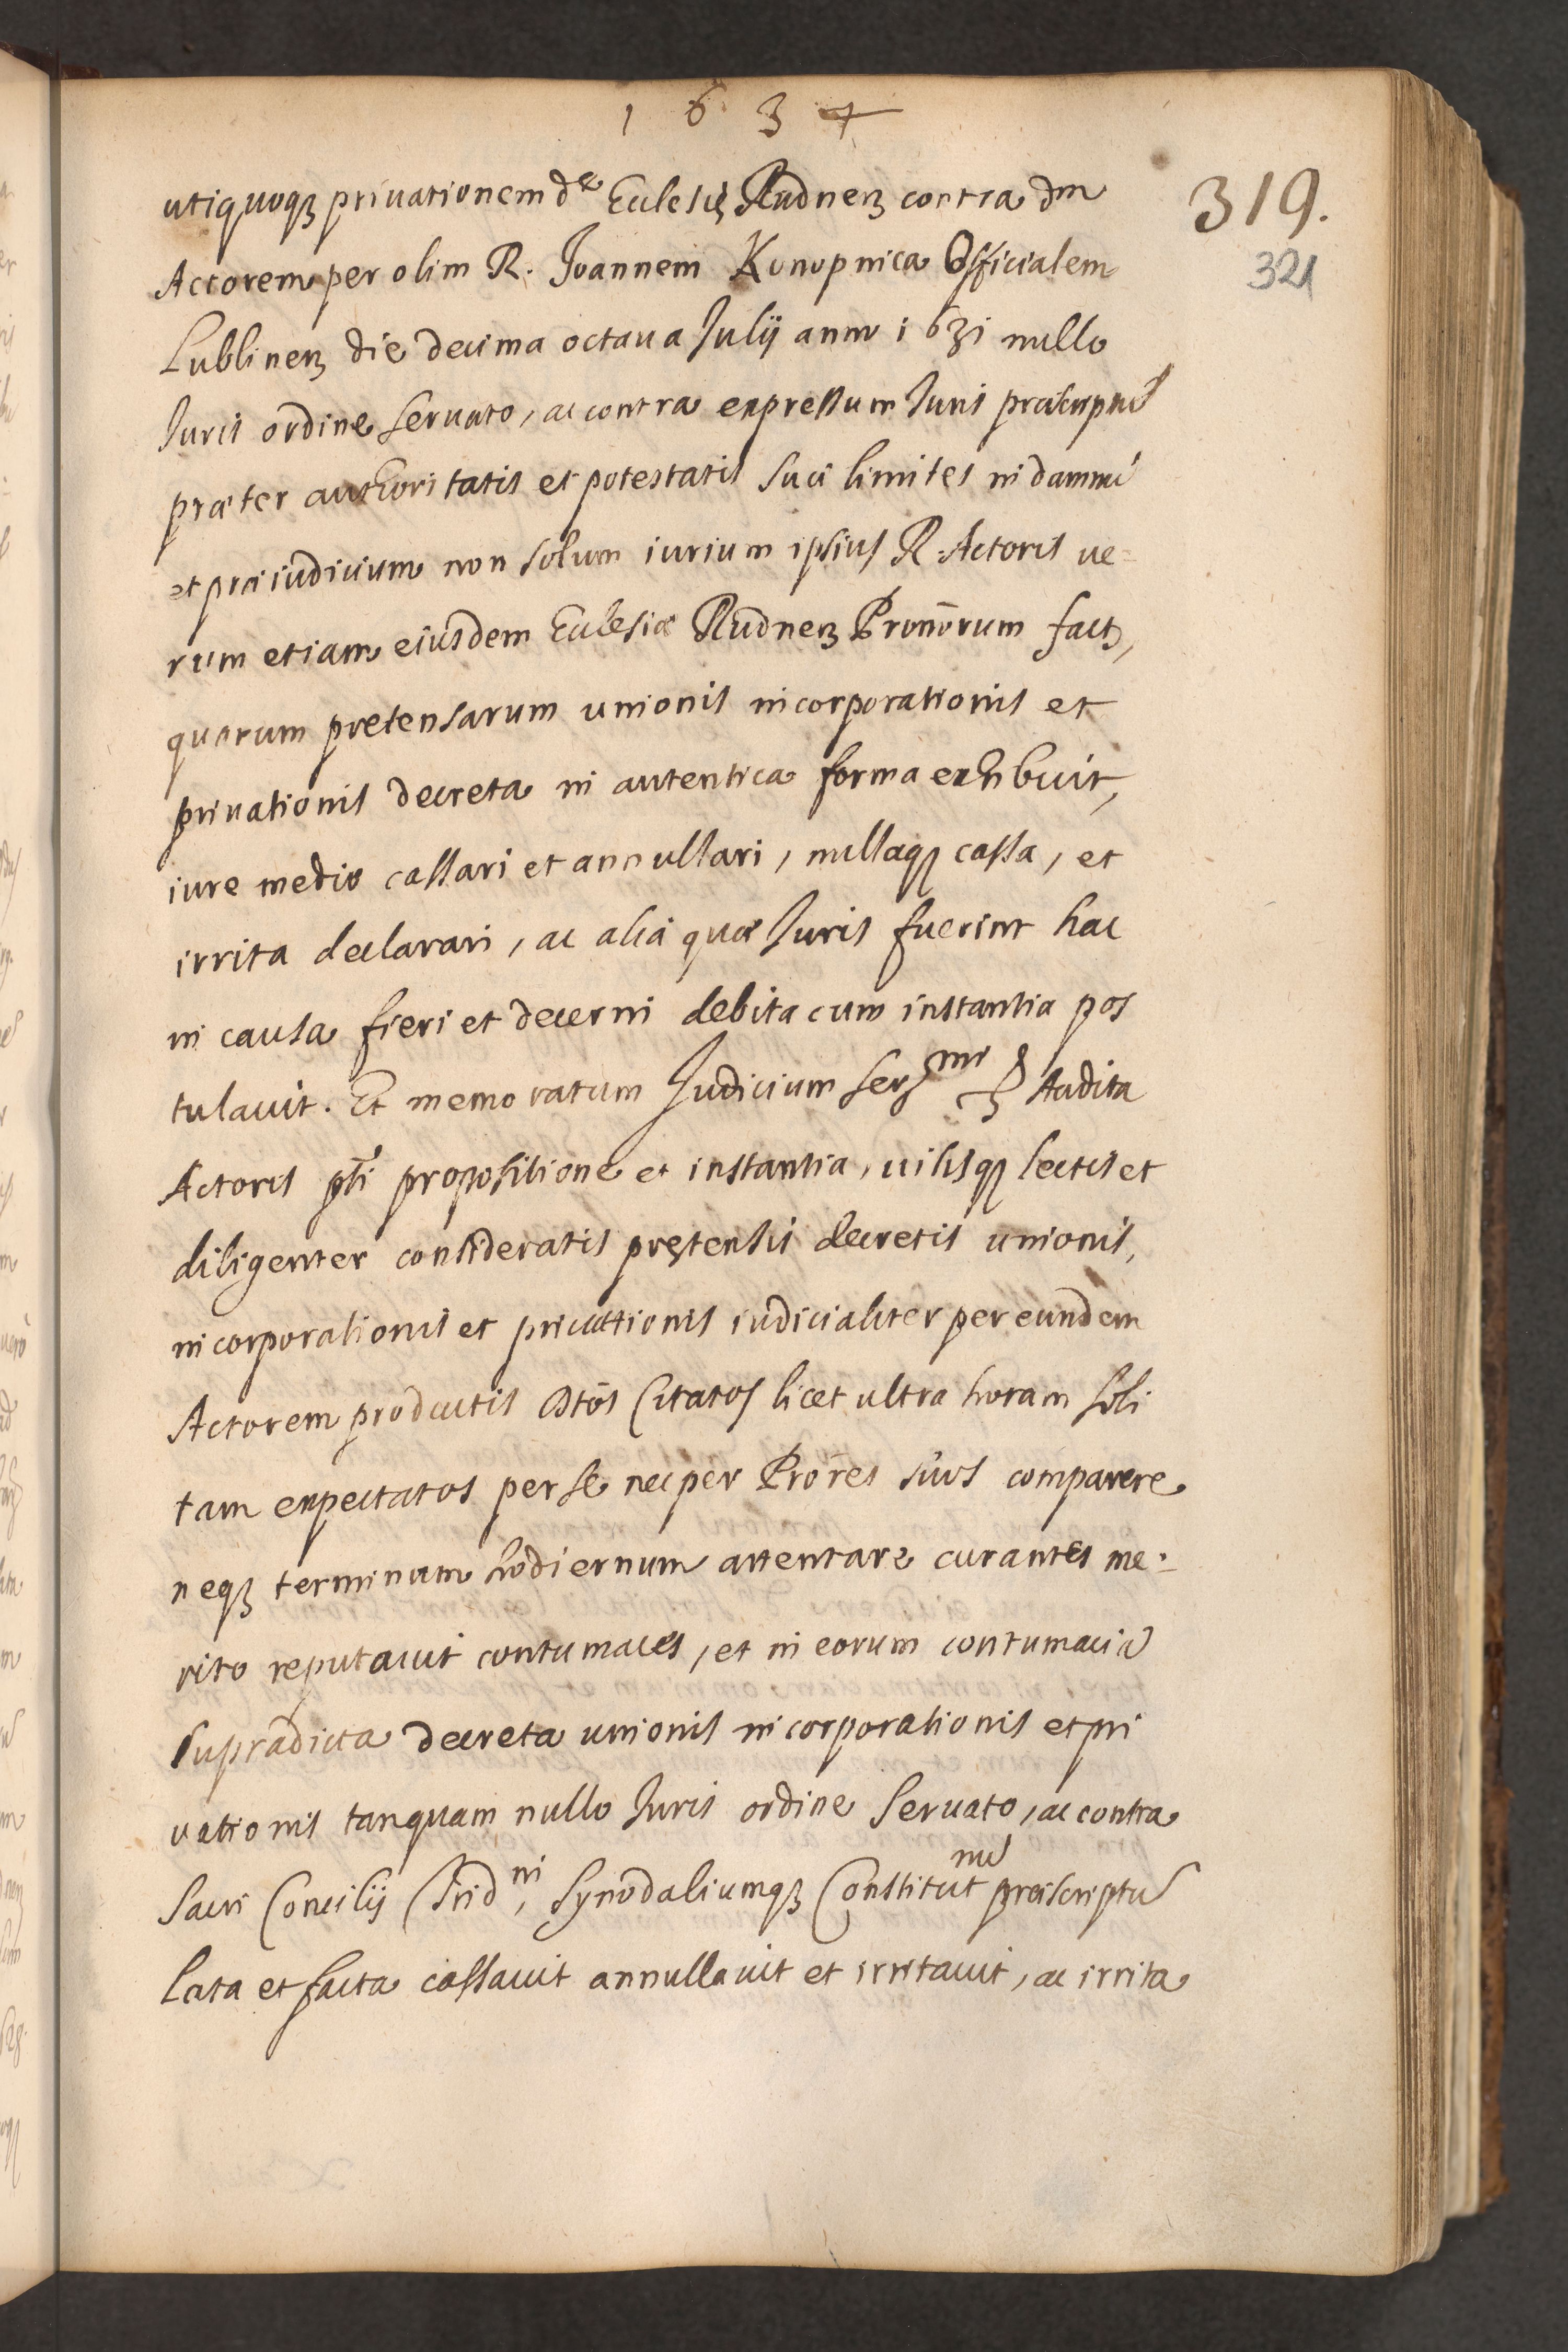 1634
319.
321
utiquoqȝ priuationem dae Ecclesię Rudneñ contra dm
Actorem per olim R. Joannem Konopnica Officialem
Lublineñ die decima octaua Julij anno 1631 nullo
Juris ordine seruato, ac contra expressum Juris præscriptũ
præter authoritatis et potestatis suæ limites in damnũ
et præiudicium non solum iurium ipsius R. Actoris ue=
rum etiam eiusdem Ecclesiæ Rudneñ Pronõrum fact,
quarum pretensarum unionis incorporationis et
priuationis decreta in autentica forma exhibuit,
iure medio cassari et annullari, nullaqȝ cassa, et
irrita declarari, ac alia quæ Juris fuerint hac
in causa fieri et decerni debita cum instantia pos
tulauit. Et memoratum Judicium Audita
Actoris pñti propositione et instantia, uisisqȝ lectis et
diligenter consideratis prętensis decretis unionis,
incorporationis et priuationis iudicialiter per eundem
Actorem productis Citatos licet ultra horam soli
tam expectatos per se nec per Prõres suos comparere
neqȝ terminum hodiernum attentare curantes me=
rito reputauit contumaces, et in eorum contumaciã
supradicta decreta unionis incorporationis et pri
uationis tanquam nullo Juris ordine seruato, ac contra
Sacri Concilij Tridni, Synodaliumqȝ Constitutnũ præscriptũ
lata et facta cassauit annullauit et irritauit, ac irrita